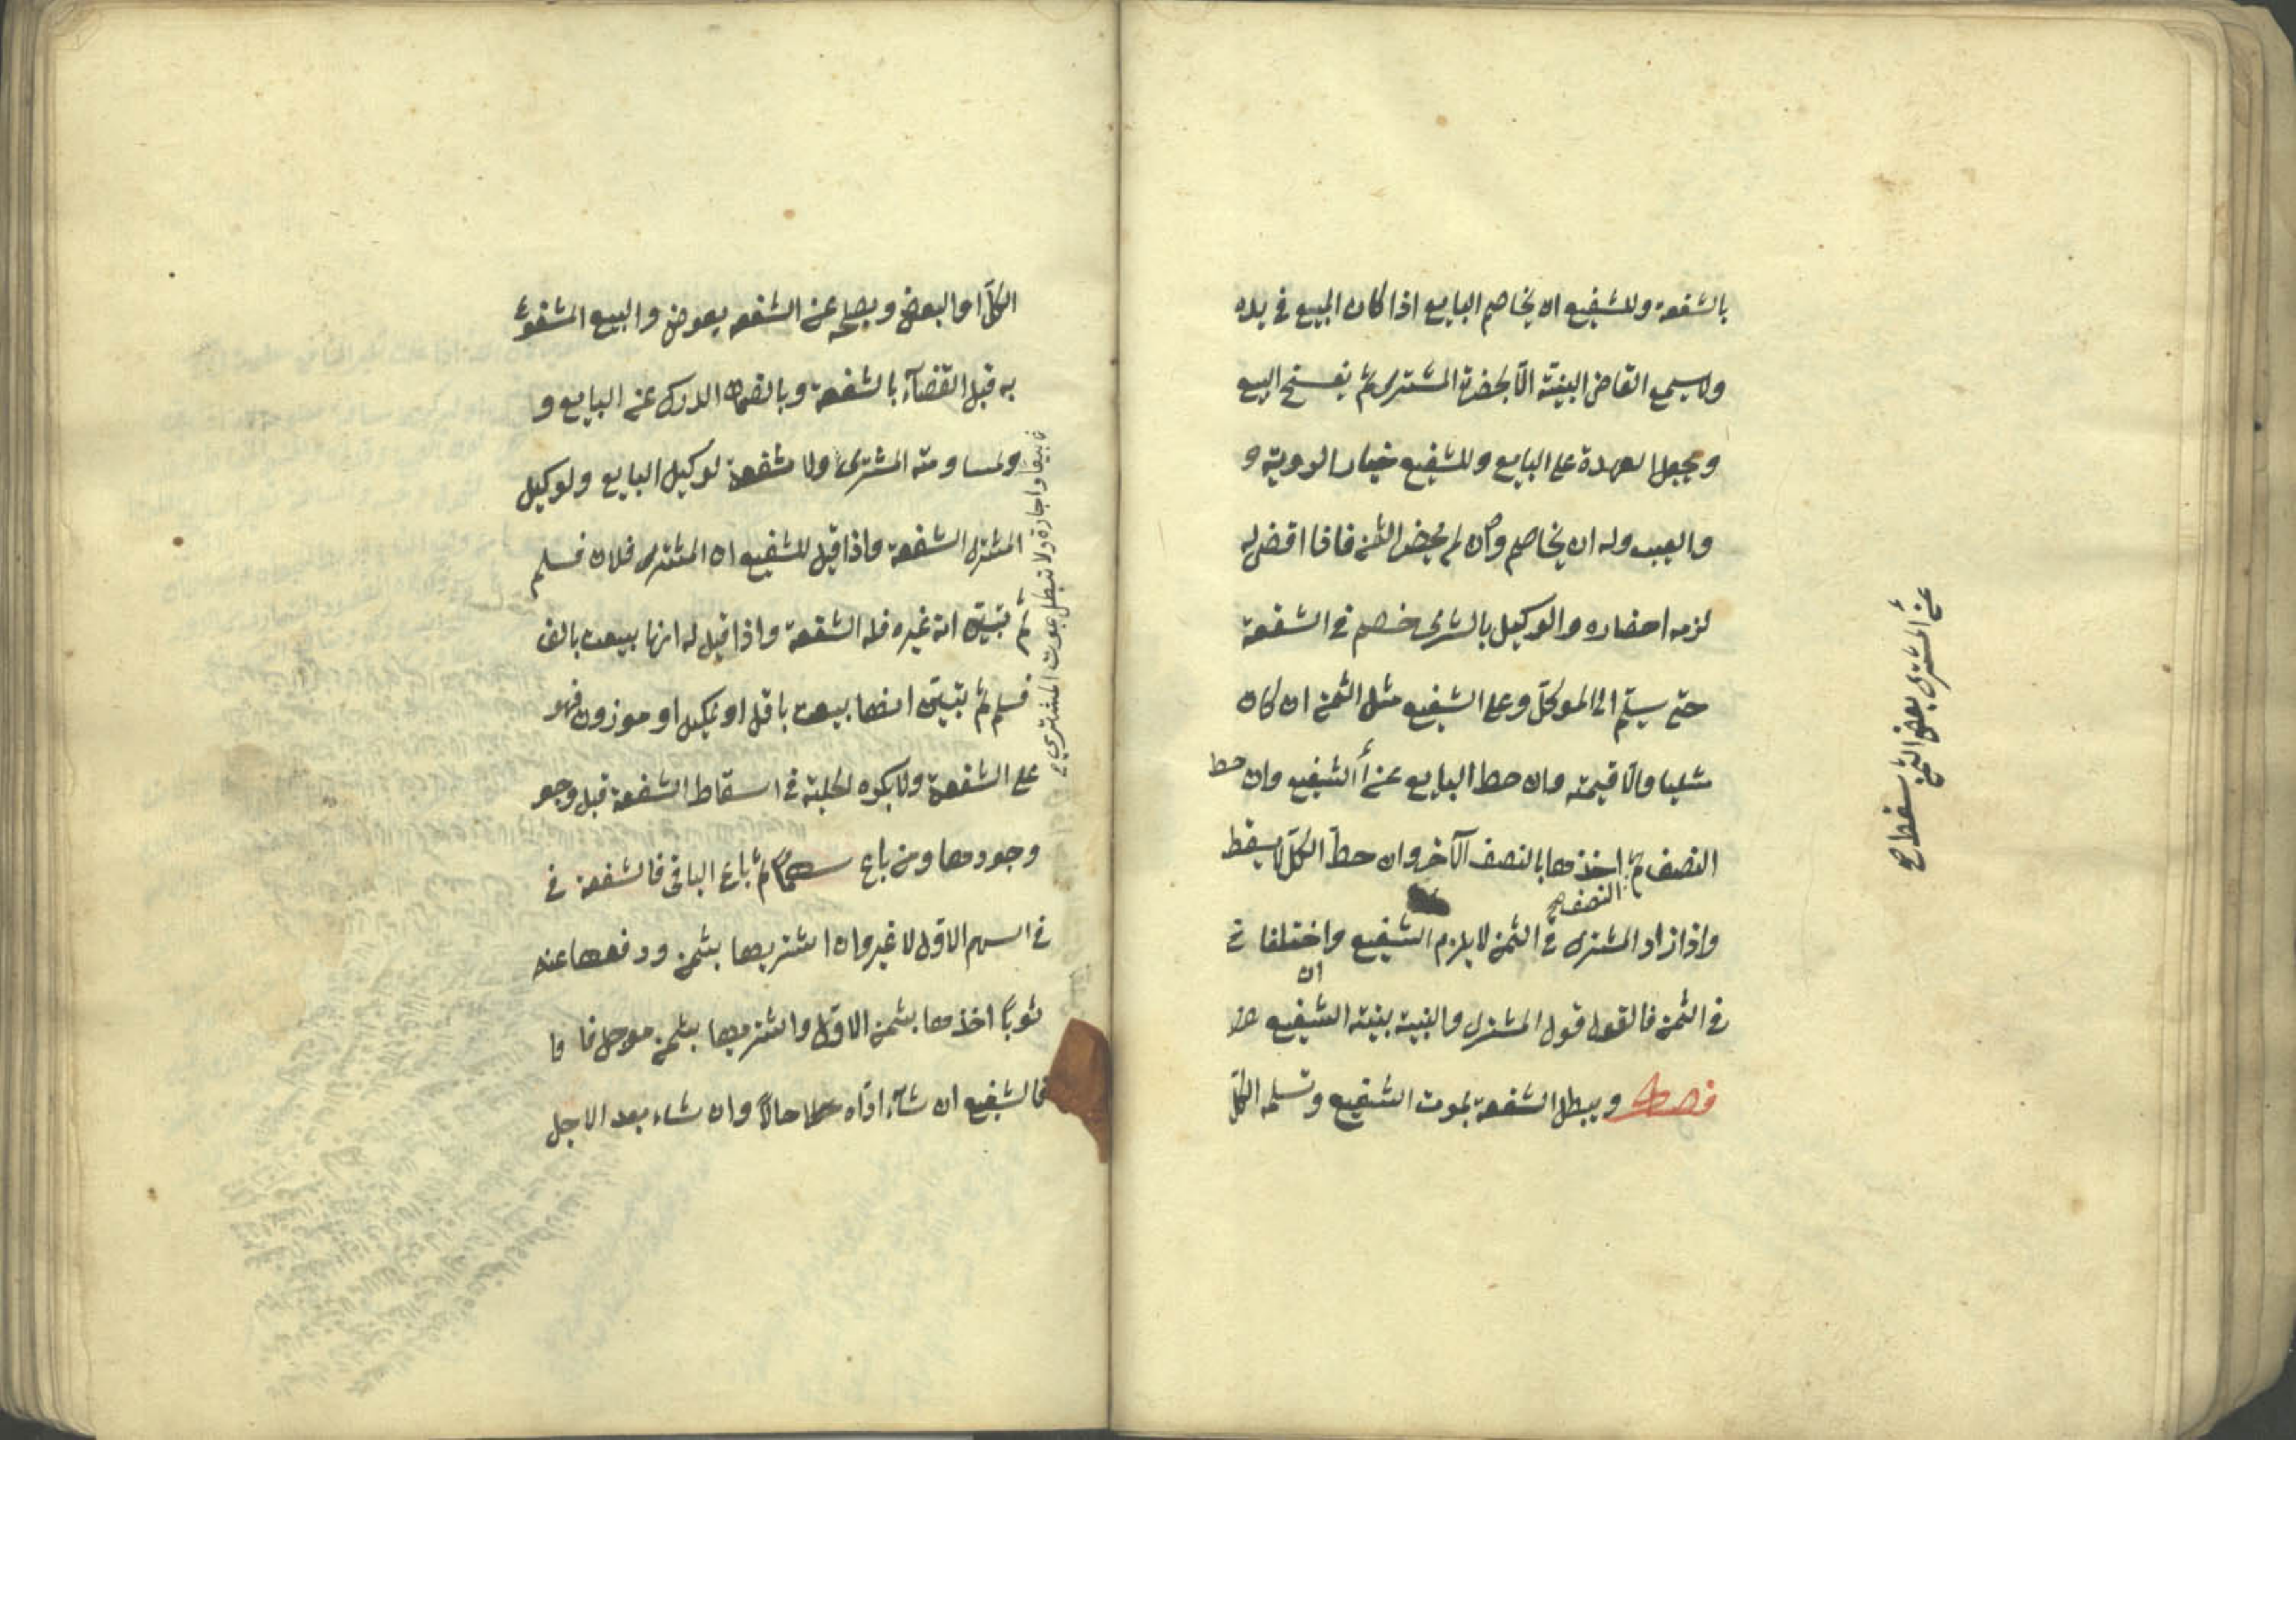 بالشفعة وللشفيع ان يخاصم البايع اذا كان المبيع في يده
ولا يسمع القاضى البينة الا بحضرة المشترى ثم يفسخ البيع
ويجعل العهدة على البايع وللشفيع خيار الروية و
والعيب وله ان يخاصم وان لم يحضر الثمن فاذا قضى له
لزمه احضاره والوكيل بالشرى خصم في الشفعة
حتى يسلم الى الموكل وعلى الشفيع مثل الثمن ان كان
مثليا والا قيمته وان حط البايع عن الشفيع وان حط
النصف ثم النصف اخذها بالنصف الآخر وان حط الكل لا يسقط
واذا زاد المشترى في الثمن لا يلزم الشفيع وان اختلفا في
في الثمن فالقول قول المشترى والبينة بينة الشفيع
فصل ويبطل الشفعة بموت الشفيع وتسليمه الكل
عن المشترى بعض الثمن سقط صح
الكلّ او البعض وبصلحه عن الشفعه بعوض والبيع المشفوع
به قبل القضآء بالشفعة وبالضمان الدرك عن البايع و
ولمساومته المشترى ولا شفعة لوكيل البايع ولوكيل
المشترى الشفعة واذا قيل للشفيع ان المشترى فلان فسلم
ثم تبين انه غيره فله الشفعة واذا قيل له انها بيعت بالف
فسلم ثم تبين انها بيعت باقل او بمكيل او موزون فهو
على الشفعة ولا يكره الحيلة في اسقاط الشفعة قبل وجو
وجودها ومن باع سهما ثم باع الباقى فالشفعة في
في السهم الاول لا غير وان اشتريها بثمن ودفعها عنه
ثوباً اخذها بثمن الاول وان اشتريها بثمن موجل فا فا
فالشفيع ان شآء ادّاه حالاً وان شاء بعد الاجل
واجارة ولا تبطل بموت المشترى